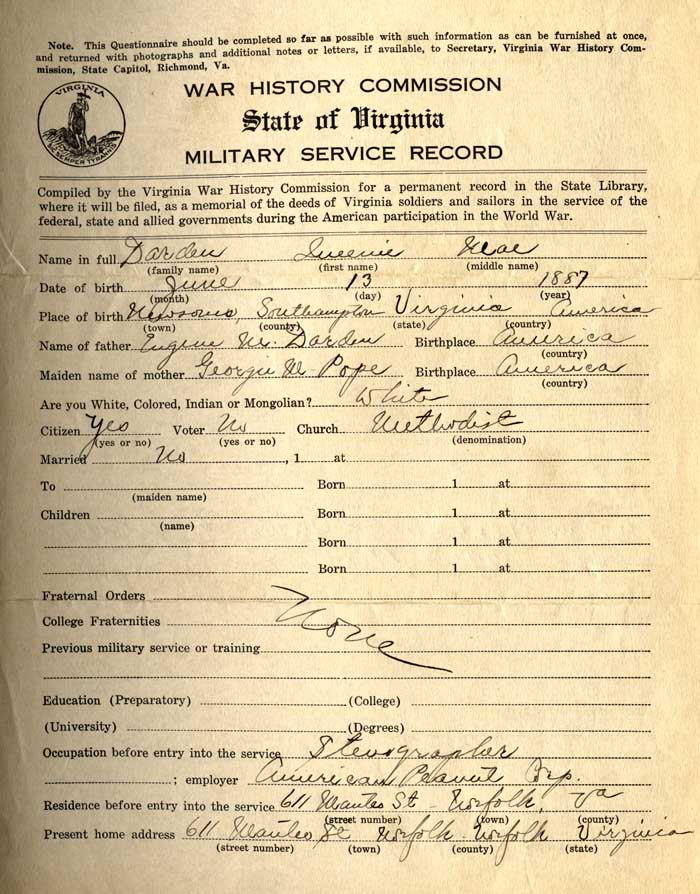 Note. This Questionnaire should be completed so far as possible with such information as can be furnished at once,
and returned with photographs and additional notes or letters, if available, to Secretary, Virginia War History Com-
mission, State Capitol, Richmond, Va.
VIRGINIA
SIC SEMPER TYRANNIS
WAR HISTORY COMMISSION
State of Virginia
MILITARY SERVICE RECORD
Compiled by the Virginia War History Commission for a permanent record in the State Library,
where it will be filed, as a memorial of the deeds of Virginia soldiers and sailors in the service of the
federal, state and allied governments during the American participation in the World War.
Name in full Darden Queenie Mae
(family name) (first name) (middle name)
Date of birth June 13 1887
(month) (day) (year)
Place of birth Newsoms, Southampton Virginia America
(town) (county) (state) (country)
Name of father Eugene M. Darden Birthplace America
(country)
Maiden name of mother Georgie W. Pope Birthplace America
(country)
Are you White, Colored, Indian or Mongolian? White
Citizen Yes Voter No Church Methodist
(yes or no) (yes or no) (denomination)
Married No , 1 at
To Born 1 at
(maiden name)
Children Born 1 at
(name)
Born 1 at
Born 1 at
Fraternal Orders
College Fraternities None
Previous military service or training
Education (Preparatory) (College)
(University) (Degrees)
Occupation before entry into the service Stenographer
; employer American Peanut Corp.
Residence before entry into the service 611 Manteo St - Norfolk, Va
(street number) (town) (county)
Present home address 611 Manteo St Norfolk - Norfolk Virginia
(street number) (town) (county) (state)